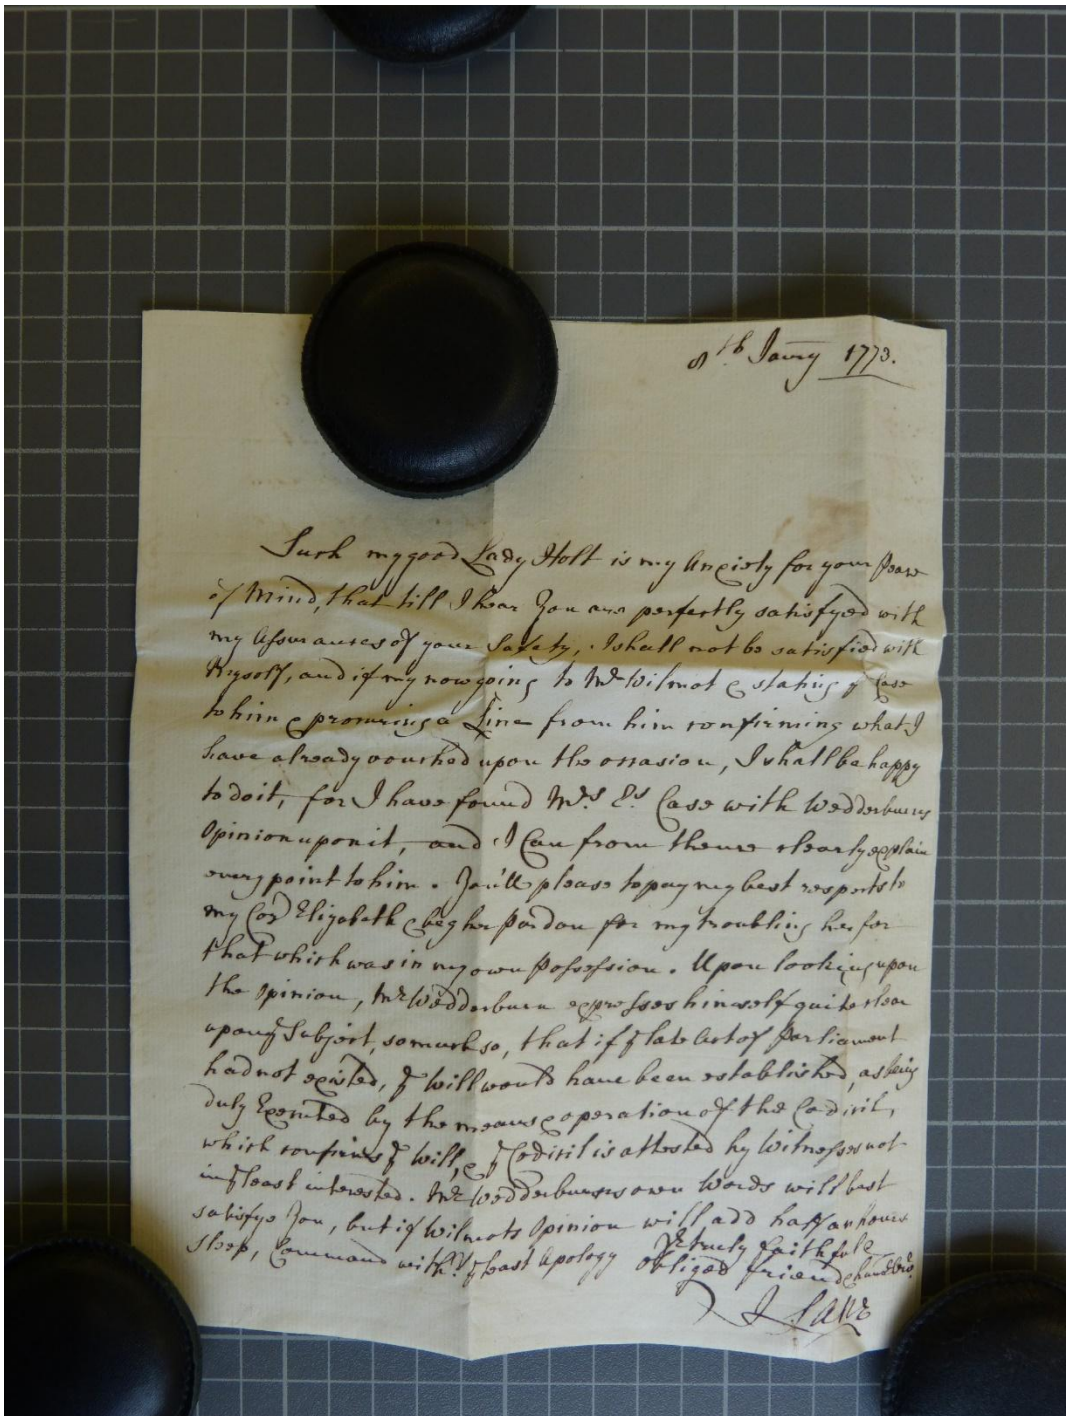 8th Janry 1773.
Such my good Lady Holt is my Anxiety for your Peace
of Mind, that till I hear You are perfectly satisfyed with
my Assurances of your Safety, I shall not be satisfied with
Myself, and if my now going to Mr Wilmot & stating ye Case
to him & promising a Line from him confirming what I
have already vouched upon the occasion, I shall be happy
to do it, for I have found Mrs. Es. Case with Wedderburns
Opinion upon it, and I Can from thence clearly explain
every point to him. You'll please to pay my best respects to
my Cosn Elizabeth & beg her Pardon for my troubling her for
that which was in my own Possession. Upon looking upon
the Opinion, Mr Wedderburn expresses himself quite clear
upon ye Subject, so much so, that if ye late Act of Parliament
had not existed, ye Will would have been established, as being
duly Executed by the means & operation of the Codicil,
which confirms ye Will, & ye Codicil is attested by Witnesses not
in ye least interested. Mr Wedderburns own Words will best
satisfye You, but if Wilmots Opinion will add half an hours
sleep, Command witht. ye least Apology Yr truly faithfull
obliged friend & humb Srt.
J Lane